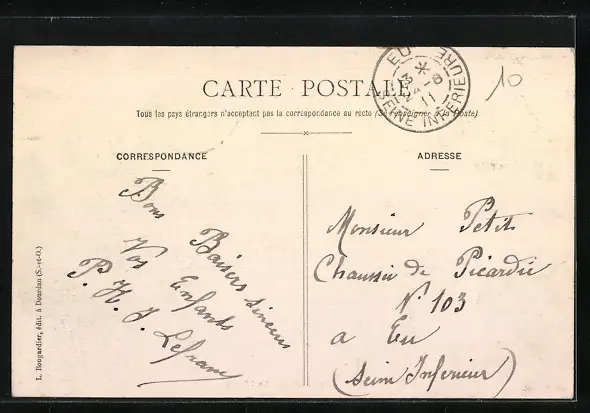 CARTE POSTALE
Tous les pays étrangers n'acceptent pas la correspondance au recto (Se renseigner à la Poste)
EU
3 *
24-8
11
SEINE INFÉRIEURE
10
CORRESPONDANCE
Bons
Baisers sincères
Vos Enfants
P. H. J. Lefranc
ADRESSE
Monsieur Petit
Chaussée de Picardie
N° 103
a Eu
(Seine Inferieur)
L. Bougardier, édit. à Dourdan (S.-et-O.)